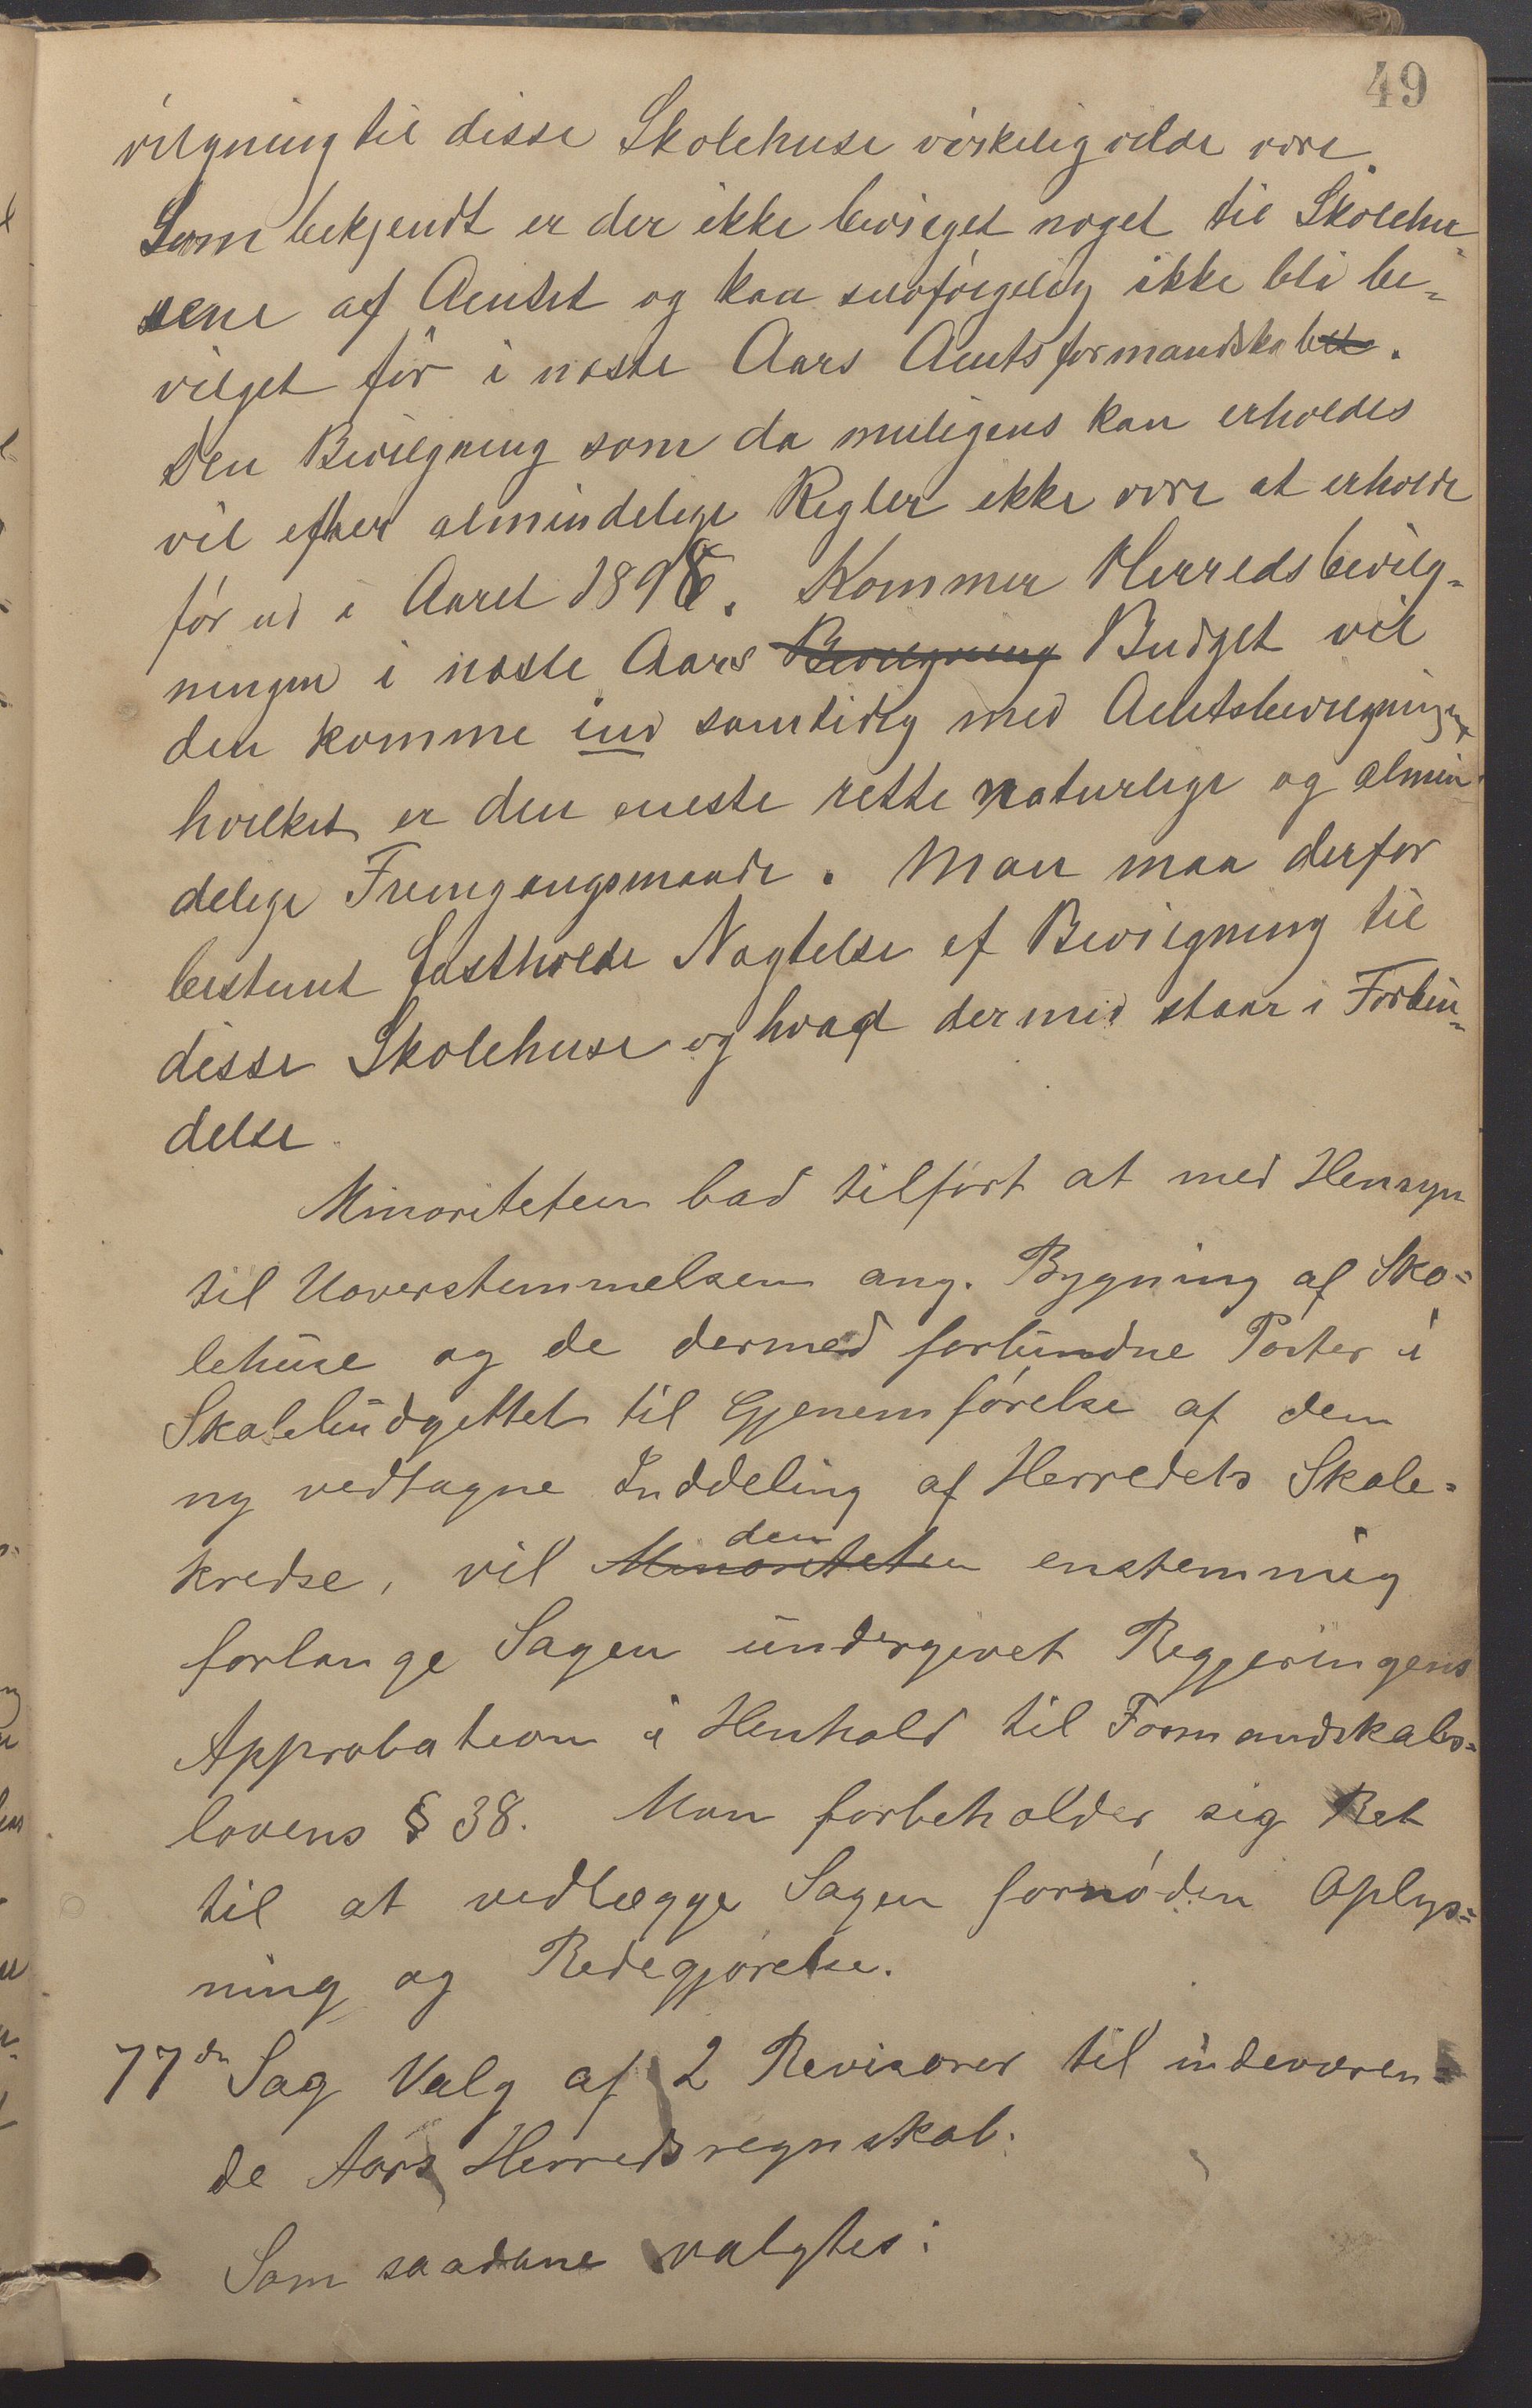 49
vilgning til disse Skolehuse virkelig vilde være.
Som bekjendt er der ikke bevilget noget til Skolehu-
sene af Amtet og kan selvfølgelig ikke bli be-
vilget før i næste Aars Amtsformandskab.
Den Bevilgning som da muligens kan erholdes
vil efter almindelige Regler ikke være at erholde
før ud i Aaret 1898. Kommer Herredsbevilg-
ningen i næste Aars Bevilgning Budget vil
den komme ind samtidig med Amtsbevilgningen
hvilket er den eneste rette naturlige og almin-
delige Fremgangsmaade. Man maa derfor
bestemt fastholde Nægtelse af Bevilgning til
disse Skolehuse og hvad dermed staar i Forbin-
delse.
Minoriteten bad tilført at med Hensyn
til Uoverstemmelsen ang. Bygning af Sko=
lehuse og de dermed forbundne Poster i
Skolebudgettet til Gjenemførelse af den
ny vedtagne Inddeling af Herredets Skole=
den
kredse, vil Minoriteten enstemmig
forlange Sagen undergivet Regjeringens
Approbation i Henhold til Formandskabs=
lovens § 38. Man forbeholder sig Ret
til at vedlægge Sagen fornøden Oplys=
ning og Redegjørelse.
77de Sag Valg af 2 Revisorer til indeværen=
de Aars Herredsregnskab.
Som saadane valgtes: